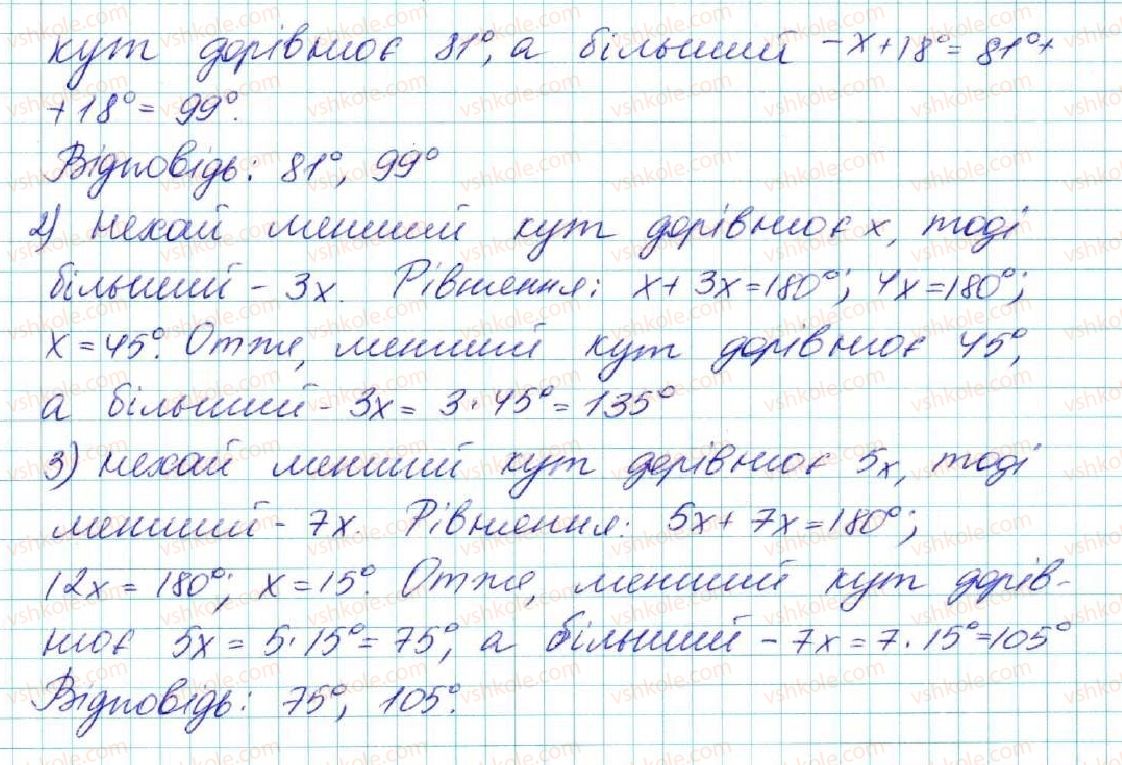 кут дорівнює 81°, а більший – x + 18° = 81° +
+ 18° = 99°.
Відповідь: 81°, 99°
2) Нехай менший кут дорівнює x, тоді
більший – 3x. Рівняння: x + 3x = 180°; 4x = 180°;
x = 45°. Отже, менший кут дорівнює 45°,
а більший – 3x = 3 · 45° = 135°
3) Нехай менший кут дорівнює 5x, тоді
менший – 7x. Рівняння: 5x + 7x = 180°;
12x = 180°; x = 15°. Отже, менший кут дорів-
нює 5x = 5 · 15° = 75°, а більший – 7x = 7 · 15° = 105°
Відповідь: 75°, 105°.
vshkole.com